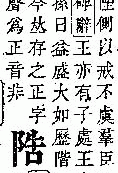 陛側以戒不虞羣臣
稗辭王亦有子處王
孫日益盛大如歷階
今攷存之正字
聲爲正音非
陼